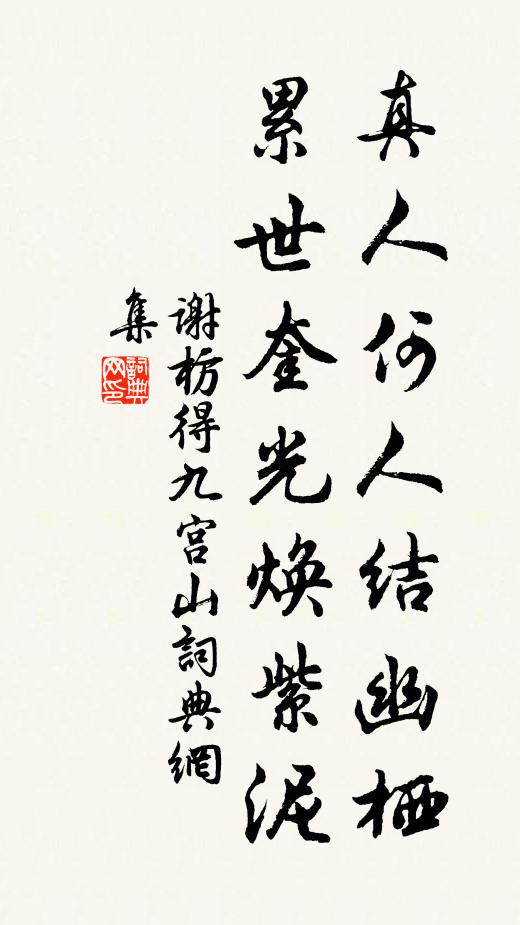 真人何人結幽栖
累世奎光煥紫泥
謝枋得九宮山詞典網
集
詞典網印